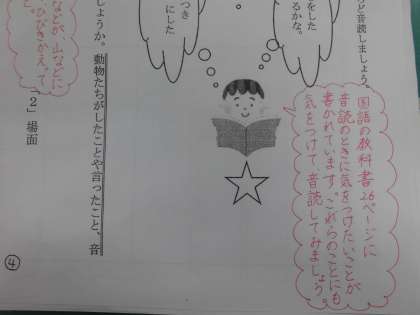 ちど音読しましょう。
をした
るかな。
国語の教科書26ページに
音読のときに気をつけたいことが
書かれています。これらのことにも
気をつけて音読してみましょう。
つき
にした
しょうか。動物たちがしたことや言ったこと、音
などが、山などに
ひびきかえって
「２」場面
④